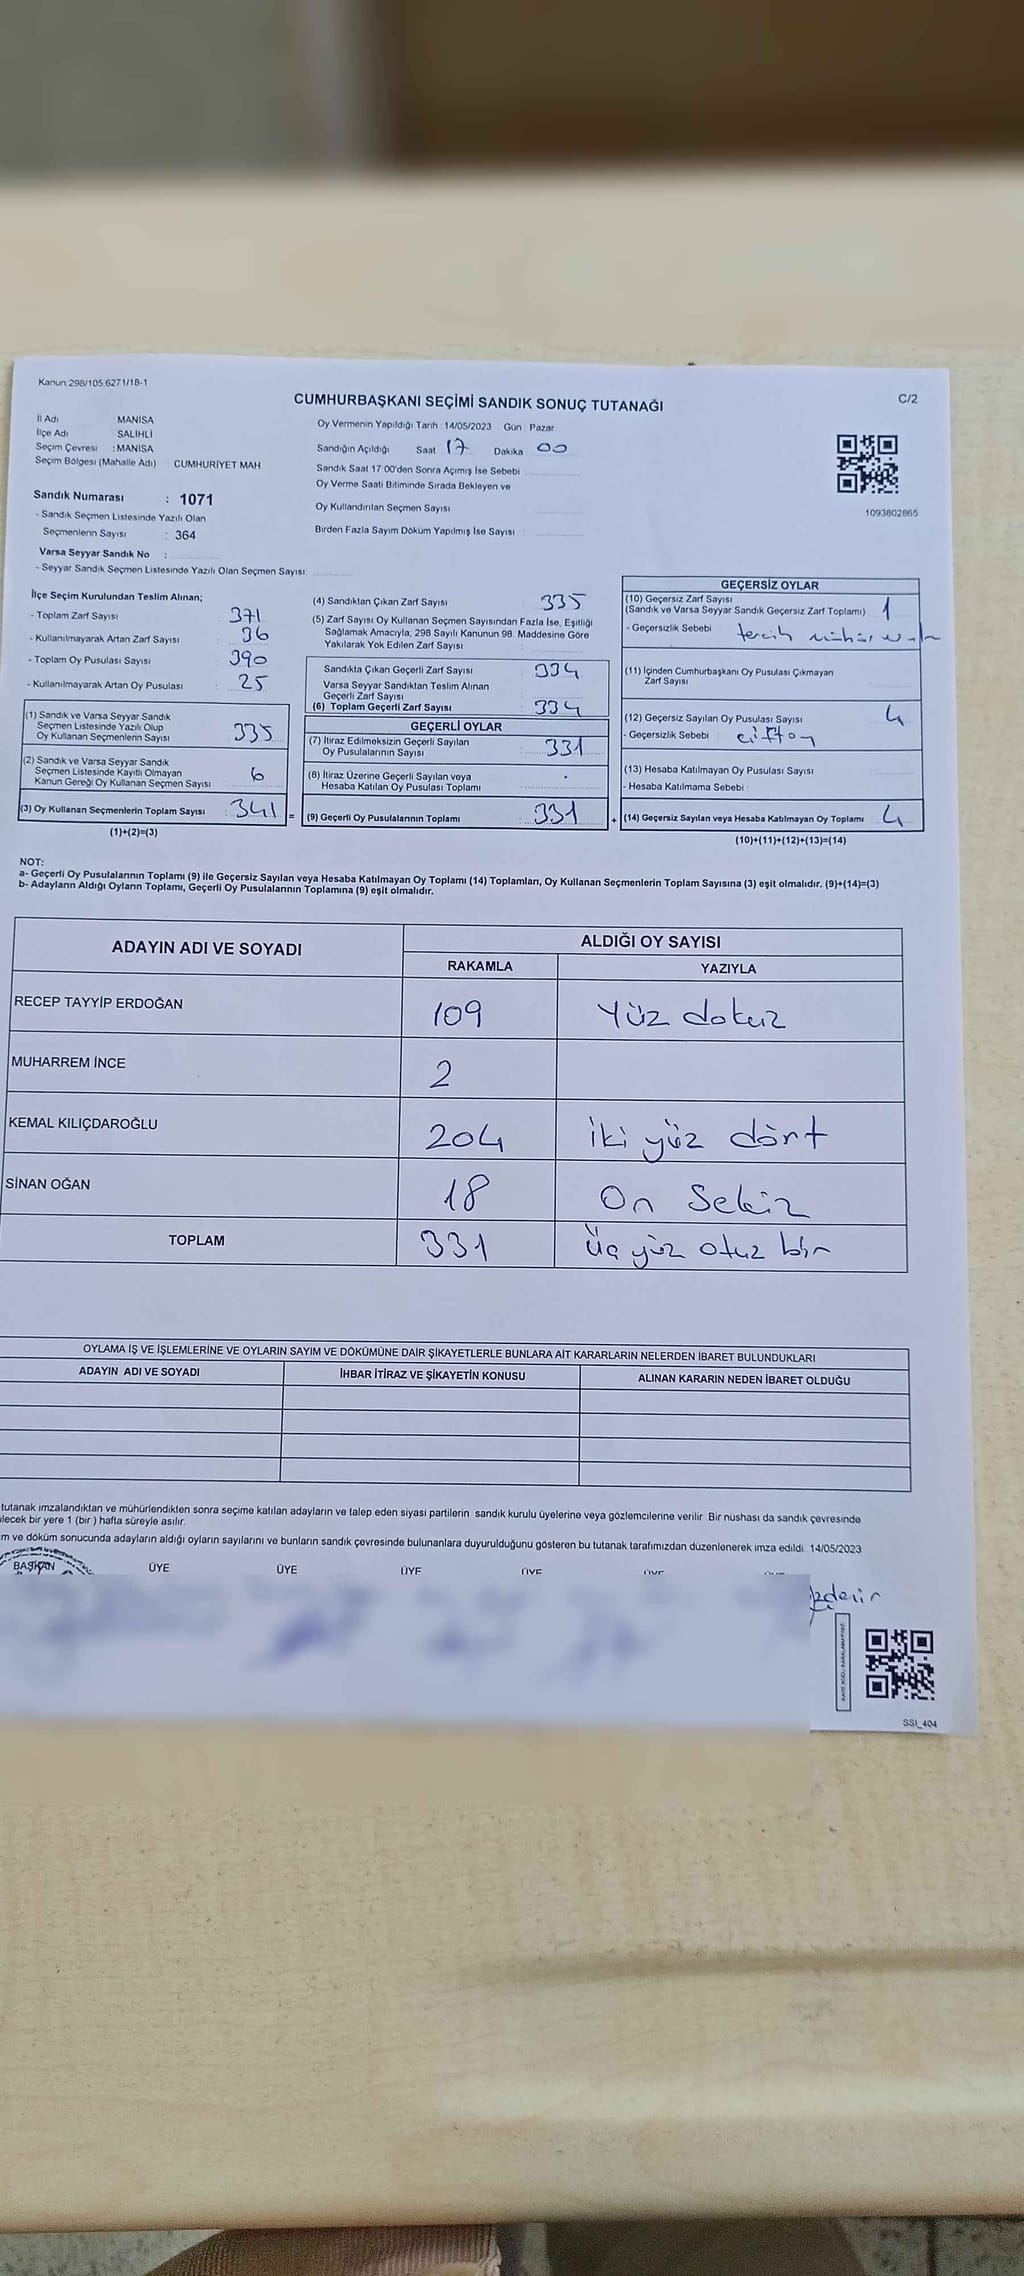 Kanun:298/105;6271/18-1
C/2
CUMHURBAŞKANI SEÇİMİ SANDIK SONUÇ TUTANAĞI
İl Adı : MANİSA
İlçe Adı : SALİHLİ
Seçim Çevresi : MANİSA
Seçim Bölgesi (Mahalle Adı) CUMHURİYET MAH
Sandık Numarası : 1071
- Sandık Seçmen Listesinde Yazılı Olan
Seçmenlerin Sayısı : 364
Varsa Seyyar Sandık No :
- Seyyar Sandık Seçmen Listesinde Yazılı Olan Seçmen Sayısı:
Oy Vermenin Yapıldığı Tarih : 14/05/2023 Gün : Pazar
Sandığın Açıldığı Saat 17 Dakika 00
Sandık Saat 17:00'den Sonra Açımış İse Sebebi :
Oy Verme Saati Bitiminde Sırada Bekleyen ve
Oy Kullandırılan Seçmen Sayısı :
Birden Fazla Sayım Döküm Yapılmış İse Sayısı :
1093802865
İlçe Seçim Kurulundan Teslim Alınan;
- Toplam Zarf Sayısı : 371
- Kullanılmayarak Artan Zarf Sayısı : 36
- Toplam Oy Pusulası Sayısı : 390
- Kullanılmayarak Artan Oy Pusulası : 25
(1) Sandık ve Varsa Seyyar Sandık
Seçmen Listesinde Yazılı Olup
Oy Kullanan Seçmenlerin Sayısı : 335
(2) Sandık ve Varsa Seyyar Sandık
Seçmen Listesinde Kayıtlı Olmayan
Kanun Gereği Oy Kullanan Seçmen Sayısı : 6
(3) Oy Kullanan Seçmenlerin Toplam Sayısı : 341 =
(1)+(2)=(3)
(4) Sandıktan Çıkan Zarf Sayısı : 335
(5) Zarf Sayısı Oy Kullanan Seçmen Sayısından Fazla İse, Eşitliği
Sağlamak Amacıyla, 298 Sayılı Kanunun 98. Maddesine Göre
Yakılarak Yok Edilen Zarf Sayısı :
Sandıkta Çıkan Geçerli Zarf Sayısı : 334
Varsa Seyyar Sandıktan Teslim Alınan
Geçerli Zarf Sayısı :
(6) Toplam Geçerli Zarf Sayısı : 334
GEÇERLİ OYLAR
(7) İtiraz Edilmeksizin Geçerli Sayılan
Oy Pusulalarının Sayısı : 331
(8) İtiraz Üzerine Geçerli Sayılan veya
Hesaba Katılan Oy Pusulası Toplamı :
(9) Geçerli Oy Pusulalarının Toplamı : 331 +
GEÇERSİZ OYLAR
(10) Geçersiz Zarf Sayısı
(Sandık ve Varsa Seyyar Sandık Geçersiz Zarf Toplamı) 1
- Geçersizlik Sebebi : tercih
(11) İçinden Cumhurbaşkanı Oy Pusulası Çıkmayan
Zarf Sayısı
(12) Geçersiz Sayılan Oy Pusulası Sayısı 4
- Geçersizlik Sebebi :
(13) Hesaba Katılmayan Oy Pusulası Sayısı
- Hesaba Katılmama Sebebi :
(14) Geçersiz Sayılan veya Hesaba Katılmayan Oy Toplamı : 4
(10)+(11)+(12)+(13)=(14)
NOT:
a- Geçerli Oy Pusulalarının Toplamı (9) ile Geçersiz Sayılan veya Hesaba Katılmayan Oy Toplamı (14) Toplamları, Oy Kullanan Seçmenlerin Toplam Sayısına (3) eşit olmalıdır. (9)+(14)=(3)
b- Adayların Aldığı Oyların Toplamı, Geçerli Oy Pusulalarının Toplamına (9) eşit olmalıdır.
ADAYIN ADI VE SOYADI ALDIĞI OY SAYISI
RAKAMLA YAZIYLA
RECEP TAYYİP ERDOĞAN 109 Yüz dokuz
MUHARREM İNCE 2
KEMAL KILIÇDAROĞLU 204 iki yüz dört
SİNAN OĞAN 18 On Sekiz
TOPLAM 331 üç yüz otuz bir
OYLAMA İŞ VE İŞLEMLERİNE VE OYLARIN SAYIM VE DÖKÜMÜNE DAİR ŞİKAYETLERLE BUNLARA AİT KARARLARIN NELERDEN İBARET BULUNDUKLARI
ADAYIN ADI VE SOYADI İHBAR İTİRAZ VE ŞİKAYETİN KONUSU ALINAN KARARIN NEDEN İBARET OLDUĞU
tutanak imzalandıktan ve mühürlendikten sonra seçime katılan adayların ve talep eden siyasi partilerin sandık kurulu üyelerine veya gözlemcilerine verilir. Bir nüshası da sandık çevresinde
bir yere 1 (bir ) hafta süreyle asılır.
ve döküm sonucunda adayların aldığı oyların sayılarını ve bunların sandık çevresinde bulunanlara duyurulduğunu gösteren bu tutanak tarafımızdan düzenlenerek imza edildi. 14/05/2023
BAŞKAN ÜYE ÜYE ÜYE ÜYE
SSI_404